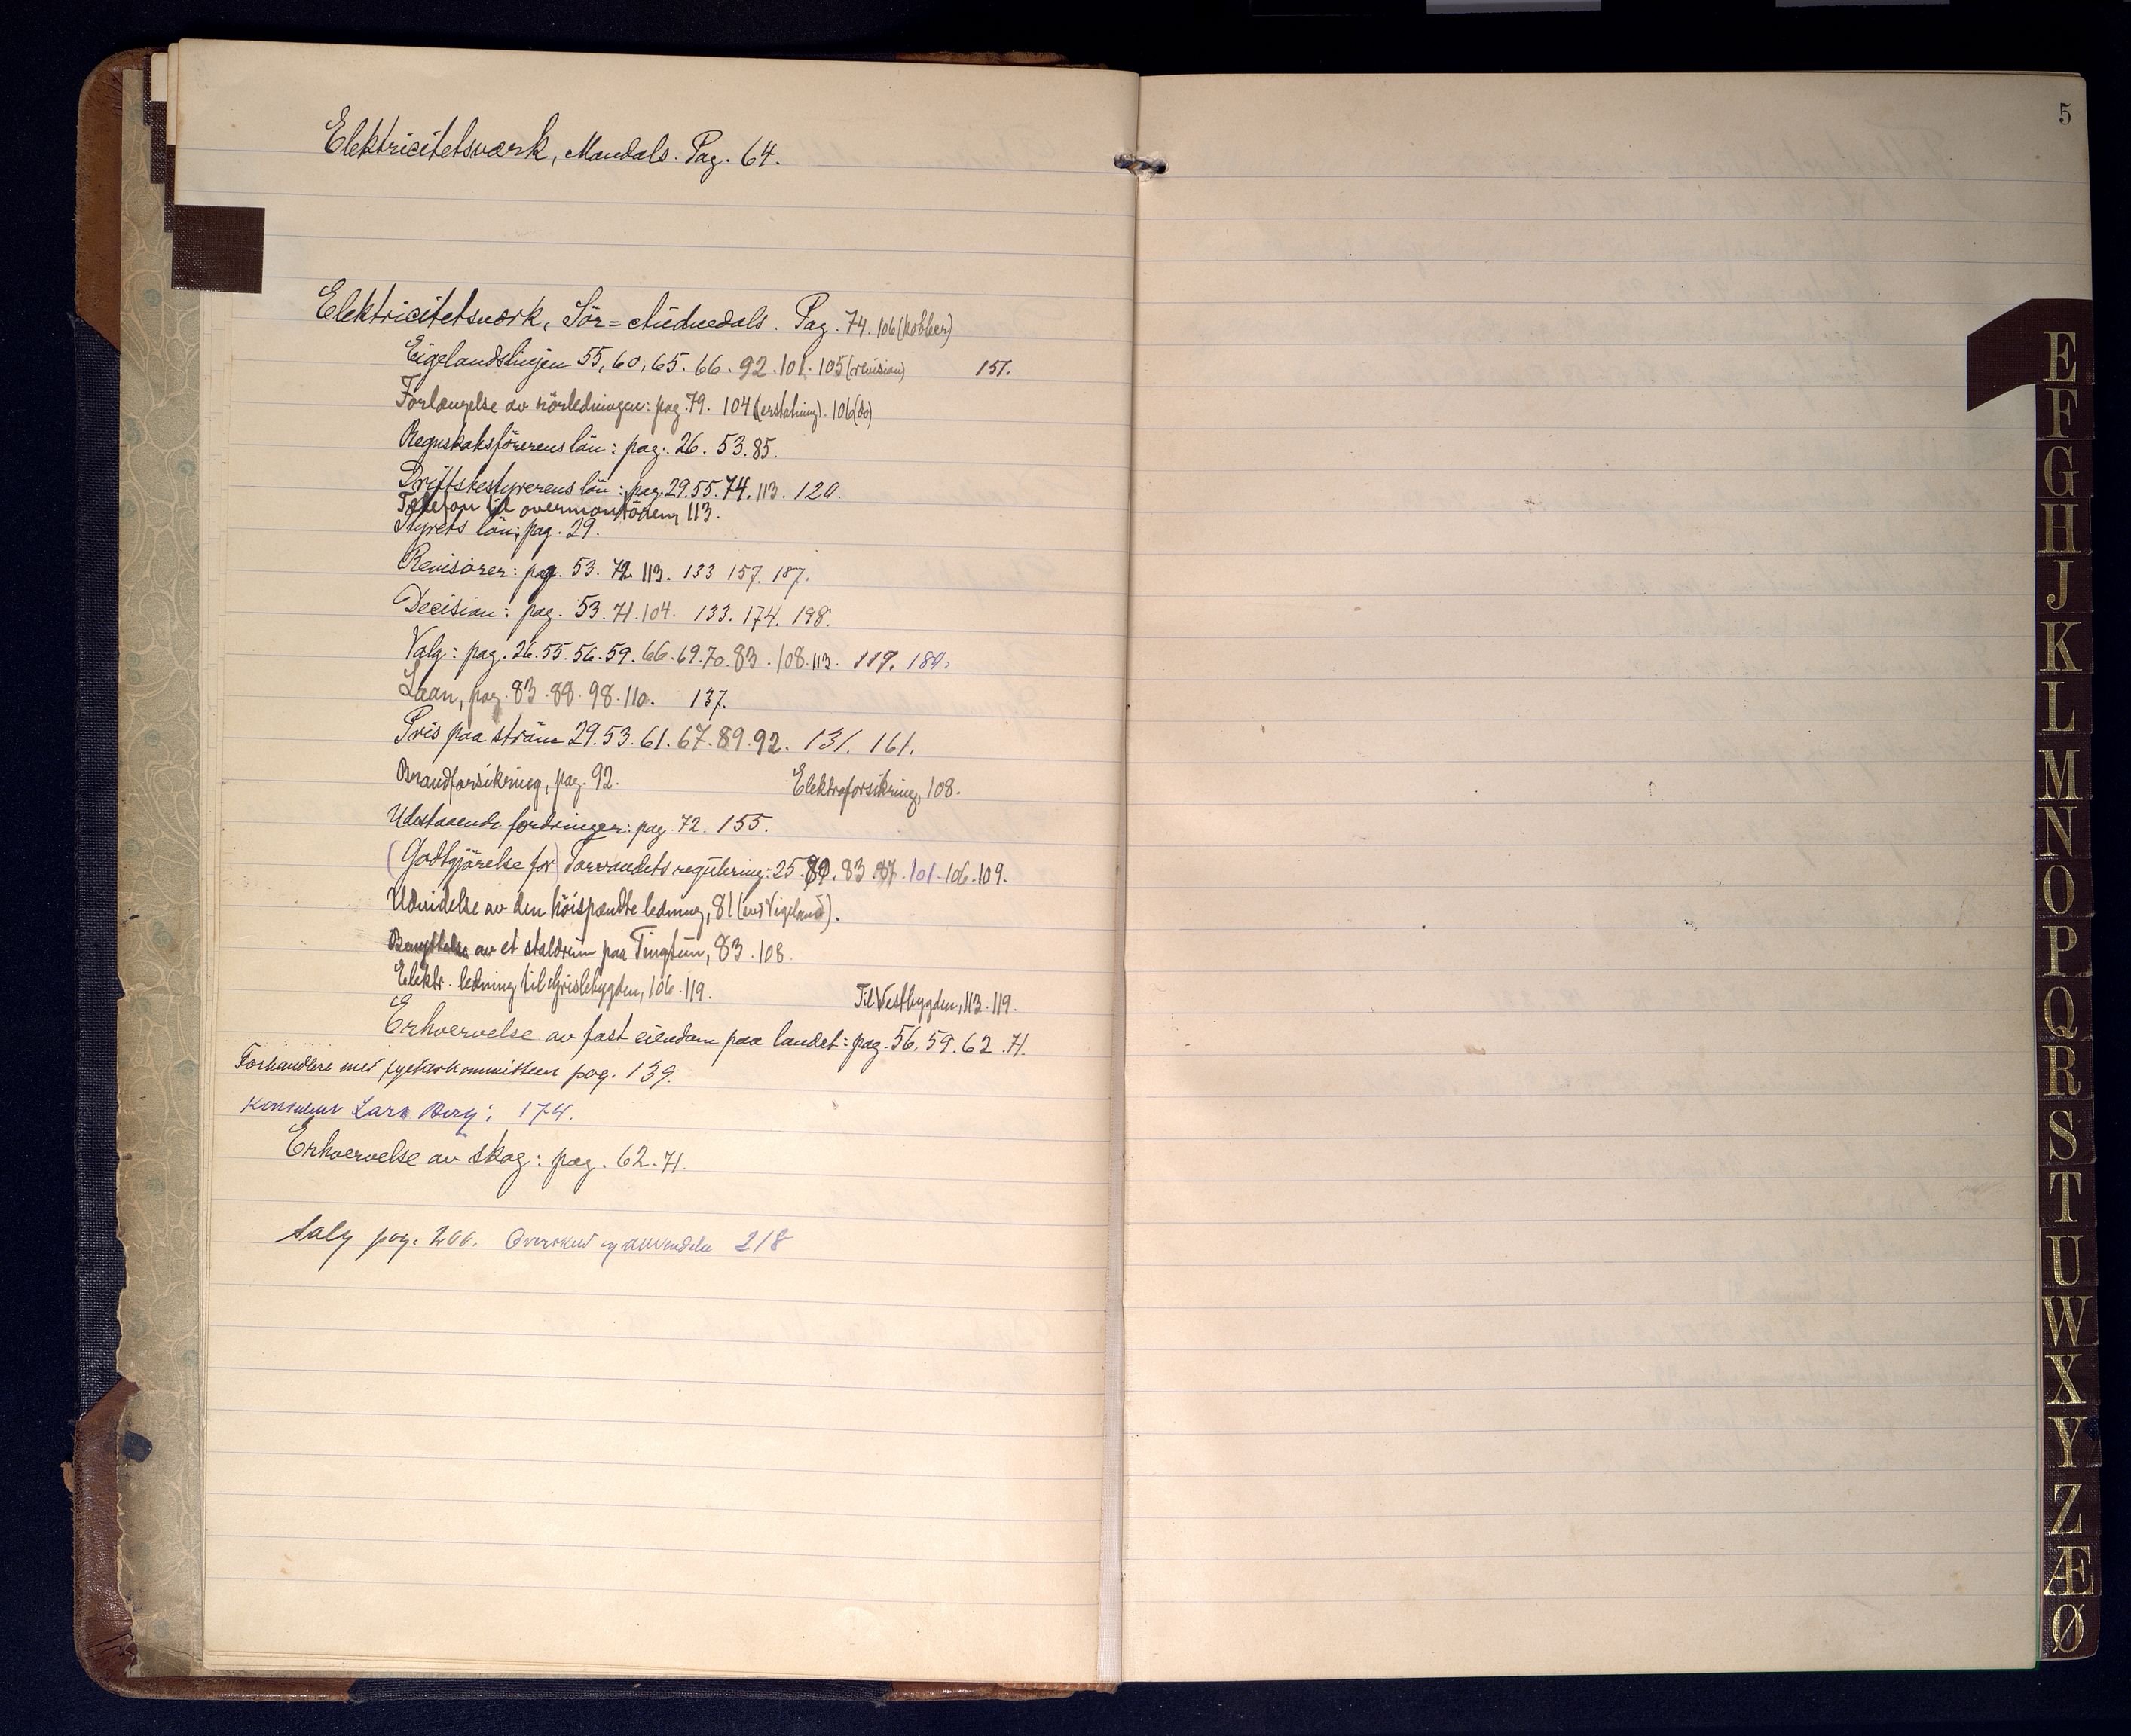 Elektricitetsværk, Mandals. Pag. 64.
Elektricitetsværk, Sör=Audnedals. Pag. 74. 106 (kobber)
Eigelandslinjen 55, 60, 65. 66. 92. 101. 105 (revision) 151.
Forlængelse av rörledningen: pag. 79. 104 (erstatning). 106 (do)
Regnskabsförerens lön: pag. 26. 53. 85.
Driftsbestyrerens lön: pag. 29. 55. 74. 113. 120.
Telefon til overmontören, 113.
Styrets lön: pag. 29.
Revisorer: pag. 53. 72. 113. 133 157. 187.
Decision: pag. 53. 71. 104. 133. 174. 198.
Valg: pag. 26. 55. 56. 59. 66. 69. 70. 83. 108. 113. 119. 180.
Laan, pag. 83. 88. 98. 110. 137.
Pris paa ström 29. 53. 61. 67. 89. 92. 131. 161.
Brandforsikring, pag. 92. Elektroforsikring, 108.
Utestaaende fordringer: pag. 72. 155.
(Godtgjörelse for) Tarvandets regulering: 25. 83. 87. 101. 106. 109.
Utvidelse av den höispændte ledning, 81 (ved Vigeland).
Benyttelse av et staldrum paa Tingtun, 83. 108.
Elektr. ledning til Grislebygden, 106. 119. Til Vestbygden, 113. 119.
Erhvervelse av fast eiendom paa landet: pag. 56. 59. 62. 71.
Forhandlere med fylkeskommisteen pag. 139.
Konsulent Lars Berg: 174.
Erhvervelse av skog: pag. 62. 71.
Salg pag. 200. Overskud og anvendelse 218
5
E
F
G
H
J
K
L
M
N
O
P
Q
R
S
T
U
W
X
Y
Z
Æ
Ø